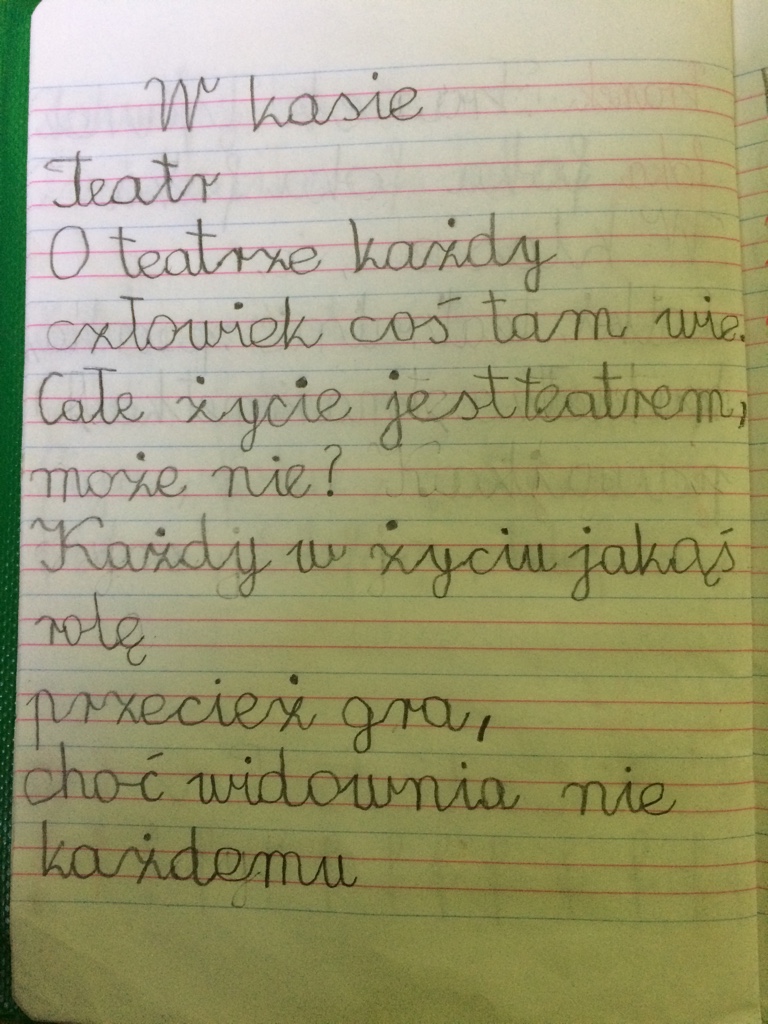 W kasie
Teatr
O teatrze każdy
człowiek coś tam wie.
Całe życie jest teatrem,
może nie?
Każdy w życiu jakąś
rolę
przecież gra,
choć widownia nie
każdemu